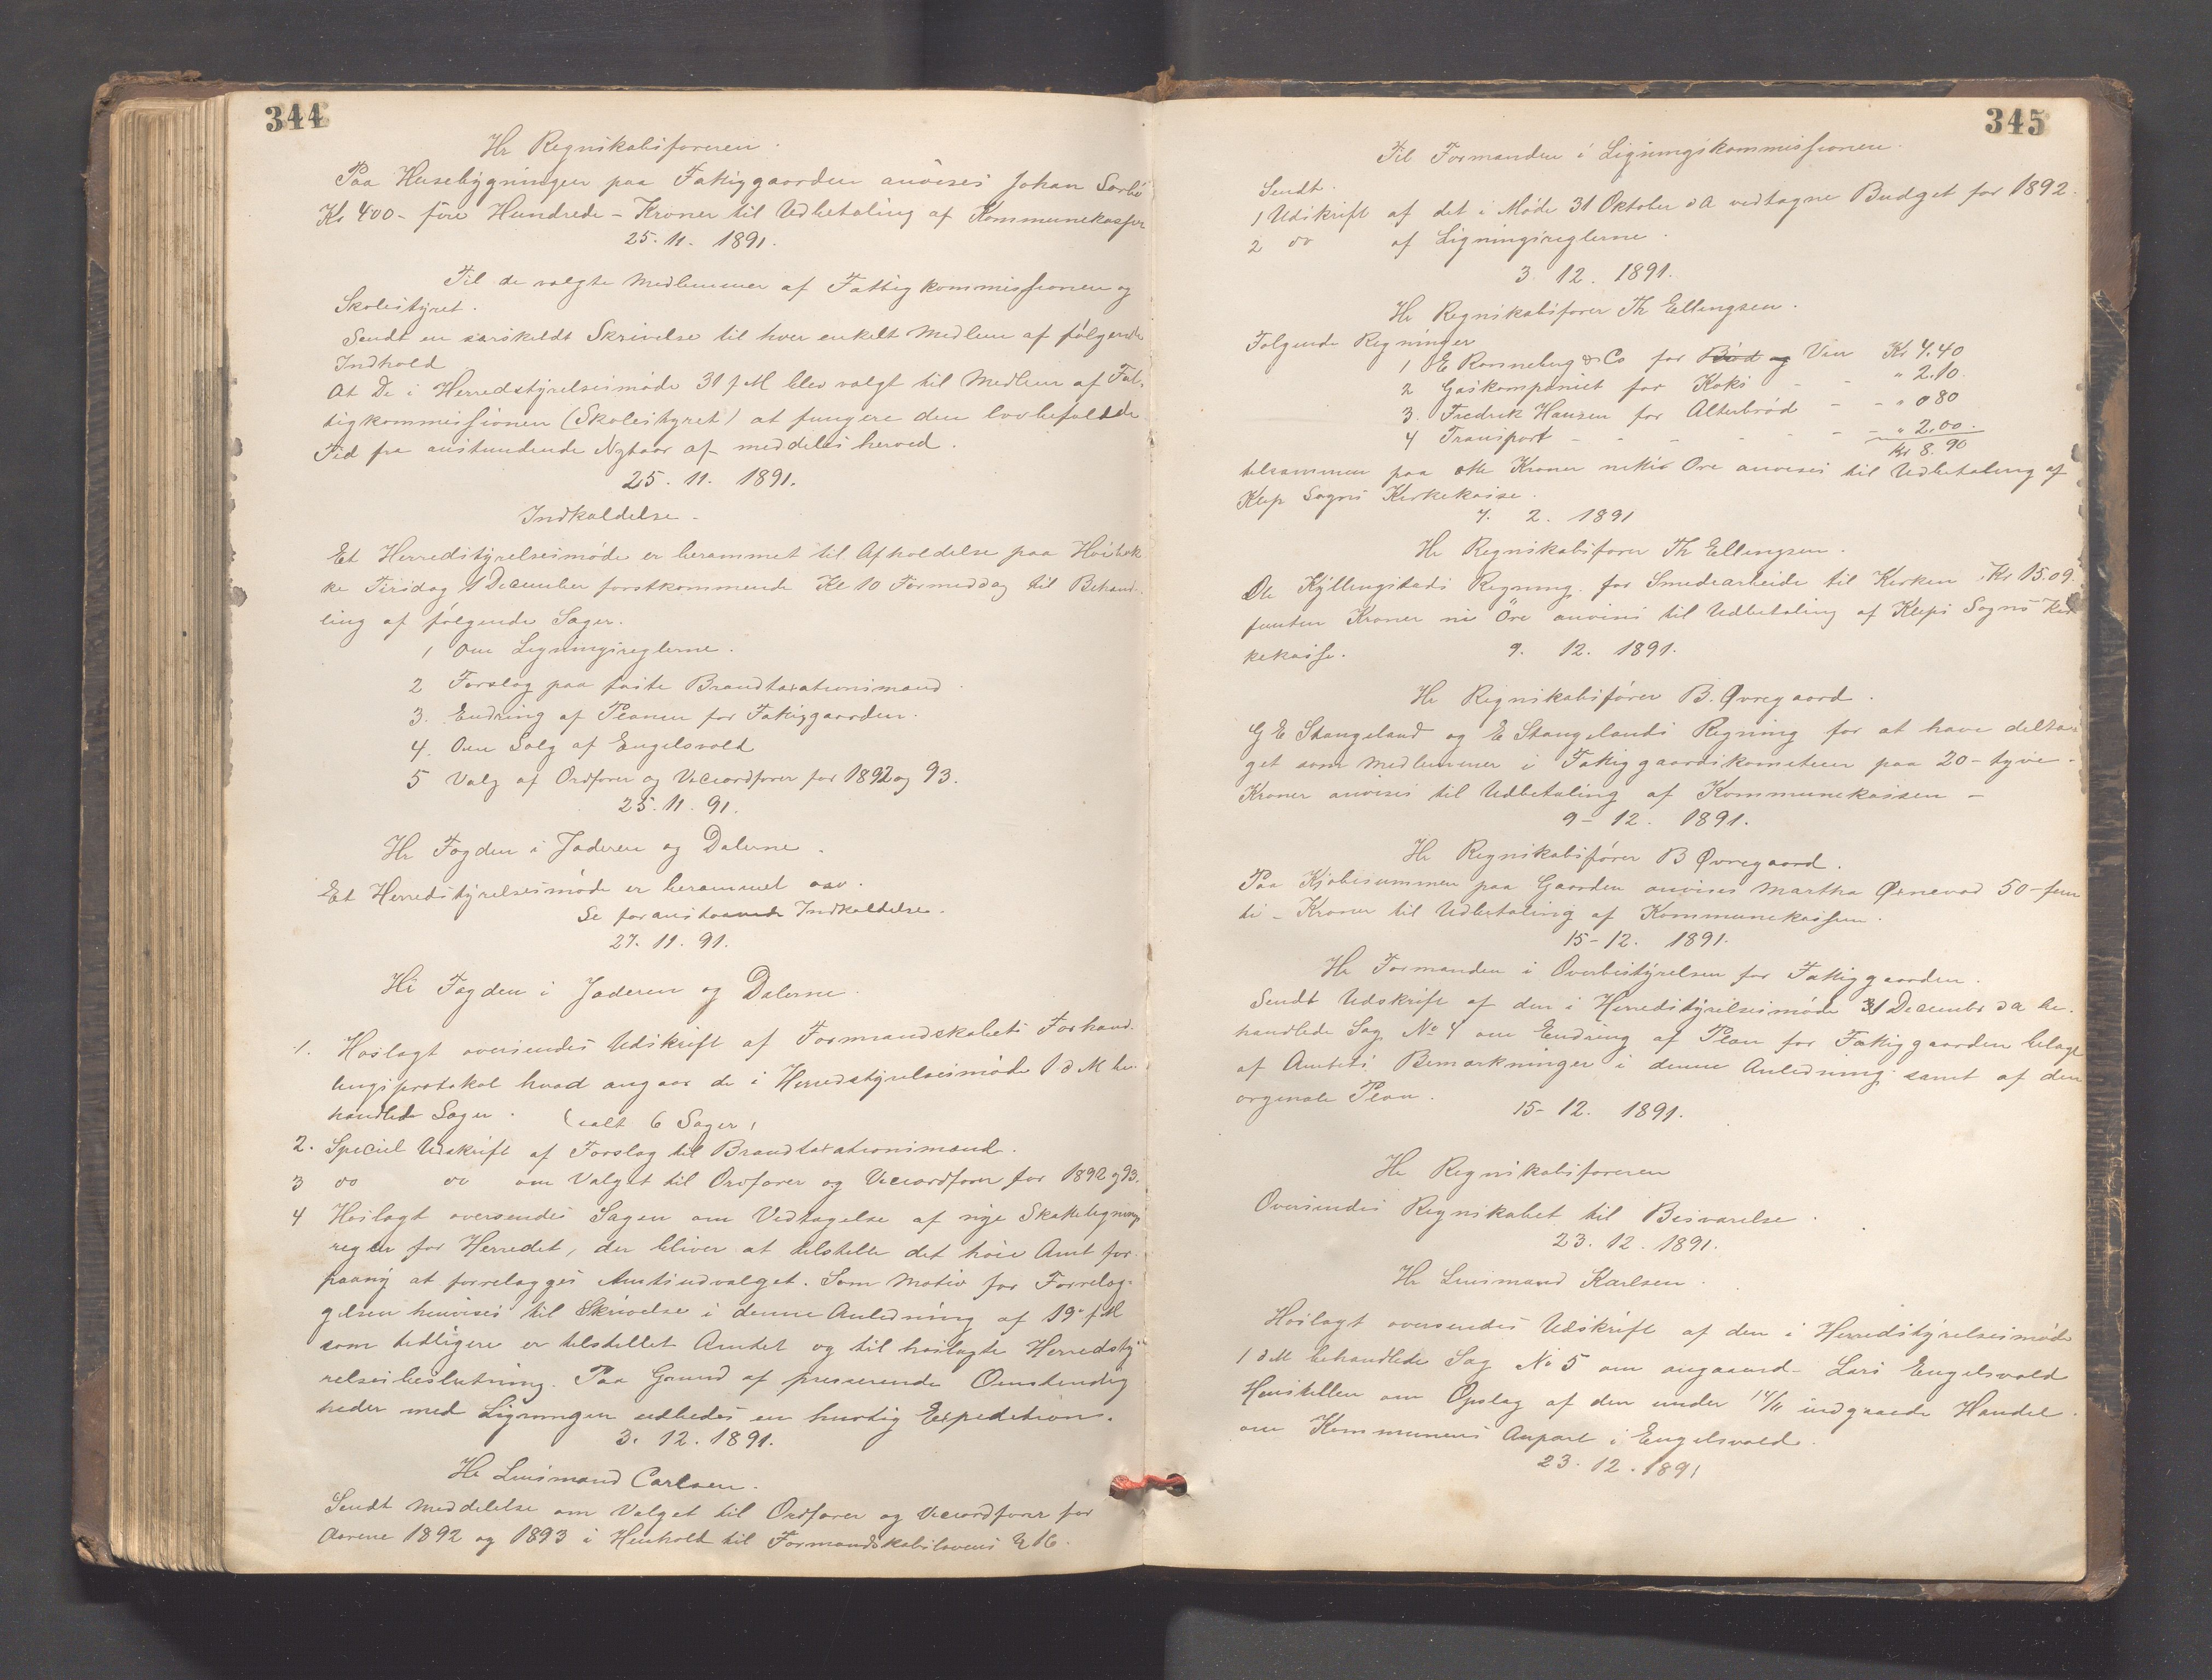 344
Hr Regnskabsføreren.
Paa Husebygningen paa Fattiggaarden anvises Johan Sørbø
Kr 400 - fire Hundrede - Kroner til Udbetaling af Kommunekassen
25. 11. 1891.
Til de valgte Medlemmer af Fattigkommissionen og
Skolestyret.
Sendt en særskildt Skrivelse til hver enkelt Medlem af følgende
Indhold
At De i Herredstyrelsesmøde 31 f M blev valgt til Medlem af Fat-
tigkommissionen (Skolestyret) at fungere den lovbefalede
Tid fra anstundende Nytaar af meddeles herved.
25. 11. 1891.
Indkaldelse -
Et Herredstyrelsesmøde er berammet til Afholdelse paa Hvibak
ke Tirsdag 1 December førstkommende Kl 10 Formiddag til Behand-
ling af følgende Sager.
1 Om Ligningsreglerne.
2 Forslag paa faste Brandtaxationsmænd.
3. Endring af Planen for Fattiggaarden.
4. Om Salg af Engelsvold
5 Valg af Ordfører og Viceordfører for 1892 og 93.
25. 11. 91.
Hr Fogden i Jæderen og Dalerne.
Et Herredstyrelsesmøde er berammet osv.
Se foranstaaende Indkaldelse.
27. 11. 91.
Hr Fogden i Jæderen og Dalerne.
1. Hoslagt oversendes Udskrift af Formandskabets Forhand-
lingsprotokol hvad angaar de i Herredstyrelsesmøde 1 d M be-
handlede Sager. (ialt 6 Sager)
2. Speciel Udskrift af Forslag til Brandtaxationsmænd.
3 do do om Valget til Ordfører og Viceordfører for 1892 og 93.
4 Hoslagt oversendes Sagen om Vedtagelse af nye Skatteligning
regler for Herredet, der bliver at tilstille det høie Amt for
paany at forrelægges Amtsudvalget. Som Motiv for Forrelæg-
gelsen henvises til Skrivelse i denne Anledning af 19- f M
som tidligere er tilstillet Amtet og til hoslagte Herredsty-
relsesbeslutning. Paa Grund af presserende Omstendig
heder med Ligningen udbedes en hurtig Expedition.
3. 12. 1891.
Hr Lensmand Carlsen.
Sendt Meddelelse om Valget til Ordfører og Viceordfører for
Aarene 1892 og 1893 i Henhold til Formandskabslovens § 16.
345
Til Formanden i Ligningskommissionen.
Sendt.
1 Udskrift af det i Møde 31 Oktober d A vedtagne Budget for 1892.
2 do af Ligningsreglerne.
3 12. 1891.
Hr Regnskabsfører Th Ellingsen.
Følgende Regninger
1 E Ronneberg & Co for Brød og Vin Kr 4.40
2 Gaskompaniet for Koks - - " 2.10.
3. Fredrik Hansen for Alterbrød - - " 0 80
4 Transport - - - - - - - " 2.00.
Kr 8. 90
tilsammen paa otte Kroner nitti Øre anvises til Udbetaling af
Klep Sogns Kirkekasse.
7. 2. 1891
Hr Regnskabsfører Th Ellingsen.
Ole Kyllingstads Regning for Smedearbeide til Kirken Kr 15.09.
femten Kroner ni Øre anvises til Udbetaling af Kleps Sogns Kir
kekasse. 9. 12. 1891.
Hr Regnskabsfører B. Øvregaard.
G E Stangeland og E Stangelands Regning for at have delta-
get som Medlemmer i Fattiggaardskomiteen paa 20 - tyve -
Kroner anvises til Udbetaling af Kommunekassen -
9 - 12. 1891.
Hr Regnskabsfører B Øvregaard.
Paa Kjøbesummen paa Gaarden anvises Martha Ørnevad 50 - fem
ti - Kroner til Udbetaling af Kommunekassen.
15 - 12. 1891.
Hr Formanden i Overbestyrelsen for Fattiggaarden.
Sendt Udskrift af den i Herredstyrelsesmøde 1 December d A be-
handlede Sag No 4 om Endring af Plan for Fattiggaarden bilagt
af Amtets Bemærkninger i denne Anledning samt af den
orginale Plan.
15 - 12. 1891.
Hr Regnskabsføreren
Oversendes Regnskabet til Besvarelse.
23. 12. 1891.
Hr Lensmand Karlsen.
Hoslagt oversendes Udskrift af den i Herredstyrelsesmøde
1 d M behandlede Sag No 5 om angaaend- Lars Engelsvold
Henstillen om Opslag af den under 14/11 indgaaede Handel.
om Kommunens Anpart i Engelsvold.
23. 12. 1891